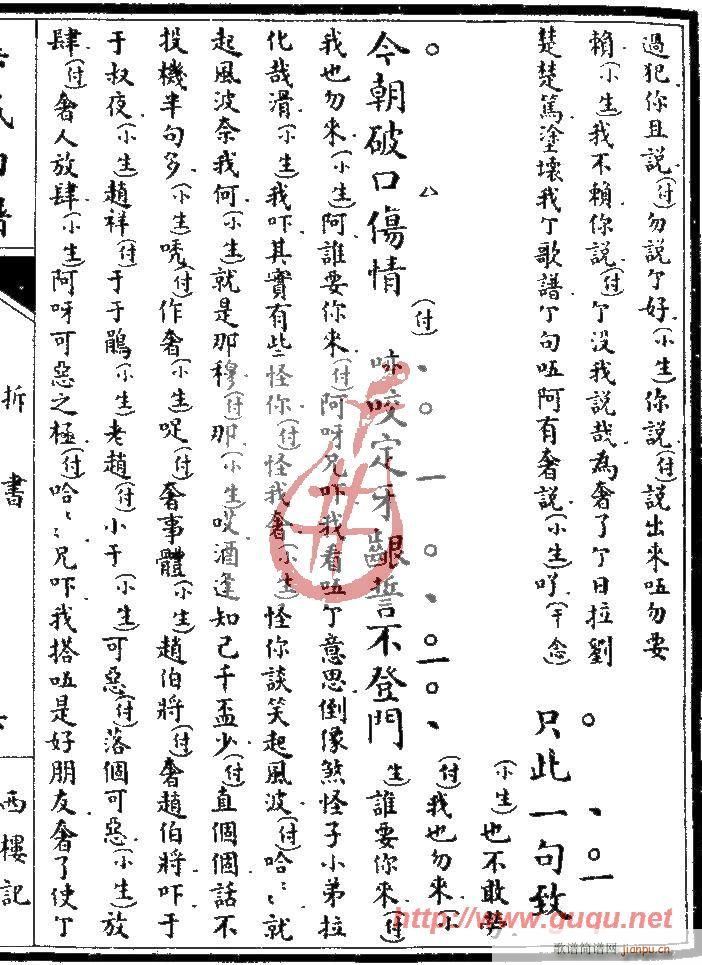 過犯你且説(付)勿説丁好(小生)你説(付)説出來㕶勿要
賴(小生)我不賴你説(付)丁没我説哉為奢了丁日拉劉
楚楚篤塗壞我丁歌譜丁句㕶阿有奢説(小生)(干念)
只此一句致
(小生)也不敢勞
(付)我也勿來(小
今朝破口傷情(付)咬定牙齦誓不登門生)誰要你來(付
我也勿來(小生)阿誰要你來(付)阿呀兄吓我看㕶丁意思倒像煞怪子小弟拉
化哉滑(小生)我吓其實有些怪你(付)怪我奢(小生)怪你談笑起風波(付)哈〻就
起風波奈我何(小生)就是那穆(付)那(小生)哎酒逢知己千盃少(付)直個個話不
投機半句多(小生)唬(付)作奢(小生)啶(付)奢事體(小生)趙伯將(付)奢趙伯將吓于
于叔夜(小生)趙祥(付)于于鵑(小生)老趙(付)小于(小生)可惡(付)落個可惡(小生)放
肆(付)奢人放肆(小生)阿呀可惡之極(付)哈〻〻兄吓我搭㕶是好朋友奢了使丁
拆書
西樓記
http://www.guqu.net
歌谱简谱网
jianpu.cn